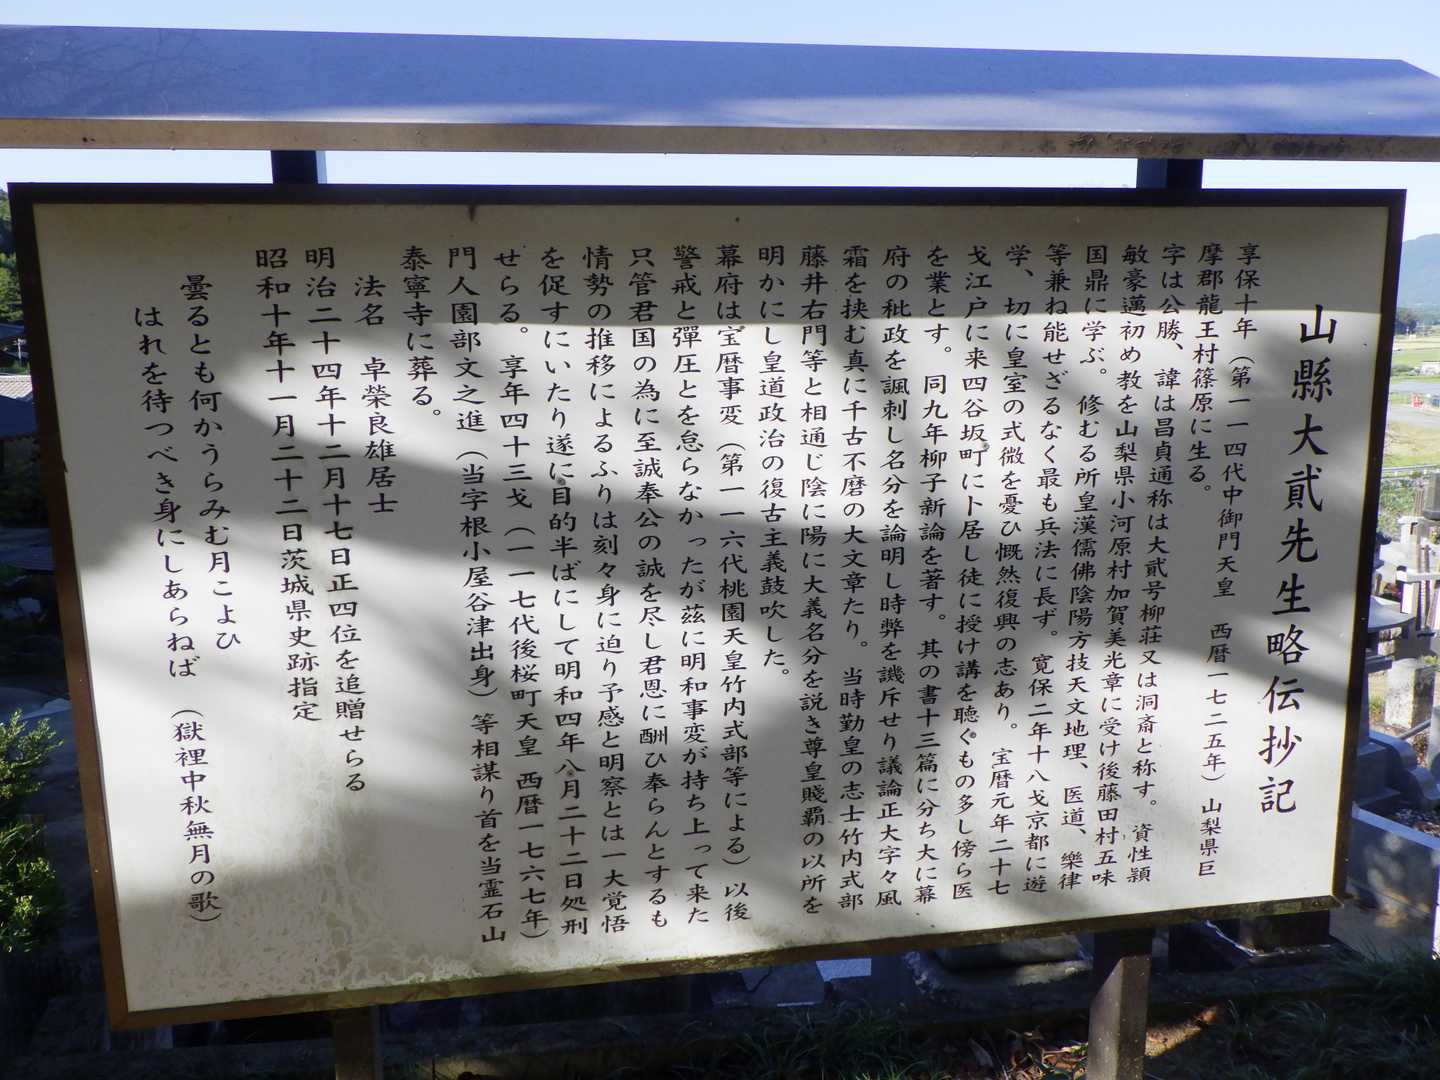 山縣大貳先生略伝抄記
享保十年（第一一四代中御門天皇　西暦一七二五年）山梨県巨
摩郡龍王村篠原に生る。
字は公勝、諱は昌貞通称は大貳号柳荘又は洞斎と称す。資性穎
敏豪邁初め教を山梨県小河原村加賀美光章に受け後藤田村五味
国鼎に学ぶ。修むる所皇漢儒佛陰陽方技天文地理、医道、樂律
等兼ね能せざるなく最も兵法に長ず。寛保二年十八戈京都に遊
学、切に皇室の式微を憂ひ慨然復興の志あり。宝暦元年二十七
戈江戸に来四谷坂町に卜居し徒に授け講を聴くもの多し傍ら医
を業とす。同九年柳子新論を著す。其の書十三篇に分ち大に幕
府の秕政を諷刺し名分を論明し時弊を譏斥せり議論正大字々風
霜を挟む真に千古不磨の大文章たり。当時勤皇の志士竹内式部
藤井右門等と相通じ陰に陽に大義名分を説き尊皇賤覇の以所を
明かにし皇道政治の復古主義鼓吹した。
幕府は宝暦事変（第一一六代桃園天皇竹内式部等による）以後
警戒と彈圧とを怠らなかったが茲に明和事変が持ち上って来た
只管君国の為に至誠奉公の誠を尽し君恩に酬ひ奉らんとするも
情勢の推移によるふりは刻々身に迫り予感と明察とは一大覚悟
を促すにいたり遂に目的半ばにして明和四年八月二十二日処刑
せらる。享年四十三戈（一一七代後桜町天皇　西暦一七六七年）
門人園部文之進（当字根小屋谷津出身）等相謀り首を当霊石山
泰寧寺に葬る。
法名　卓榮良雄居士
明治二十四年十二月十七日正四位を追贈せらる
昭和十年十一月二十二日茨城県史跡指定
曇るとも何かうらみむ月こよひ
はれを待つべき身にしあらねば　（獄裡中秋無月の歌）